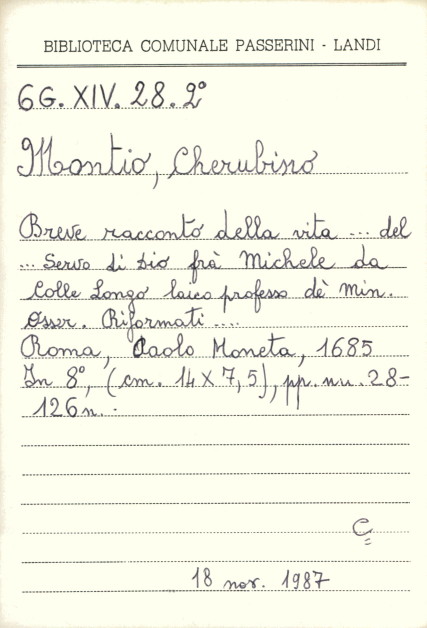 BIBLIOTECA COMUNALE PASSERINI - LANDI
6G. XIV. 28. 2°
Montio, Cherubino
Breve racconto della vita ... del
... Servo di Dio frà Michele da
Colle Longo laico professo dè Min.
Osser. Riformati ....
Roma, Paolo Moneta, 1685
In 8°, (cm. 14 X 7,5), pp. nu. 28-
126 n. .
C
18 nov. 1987